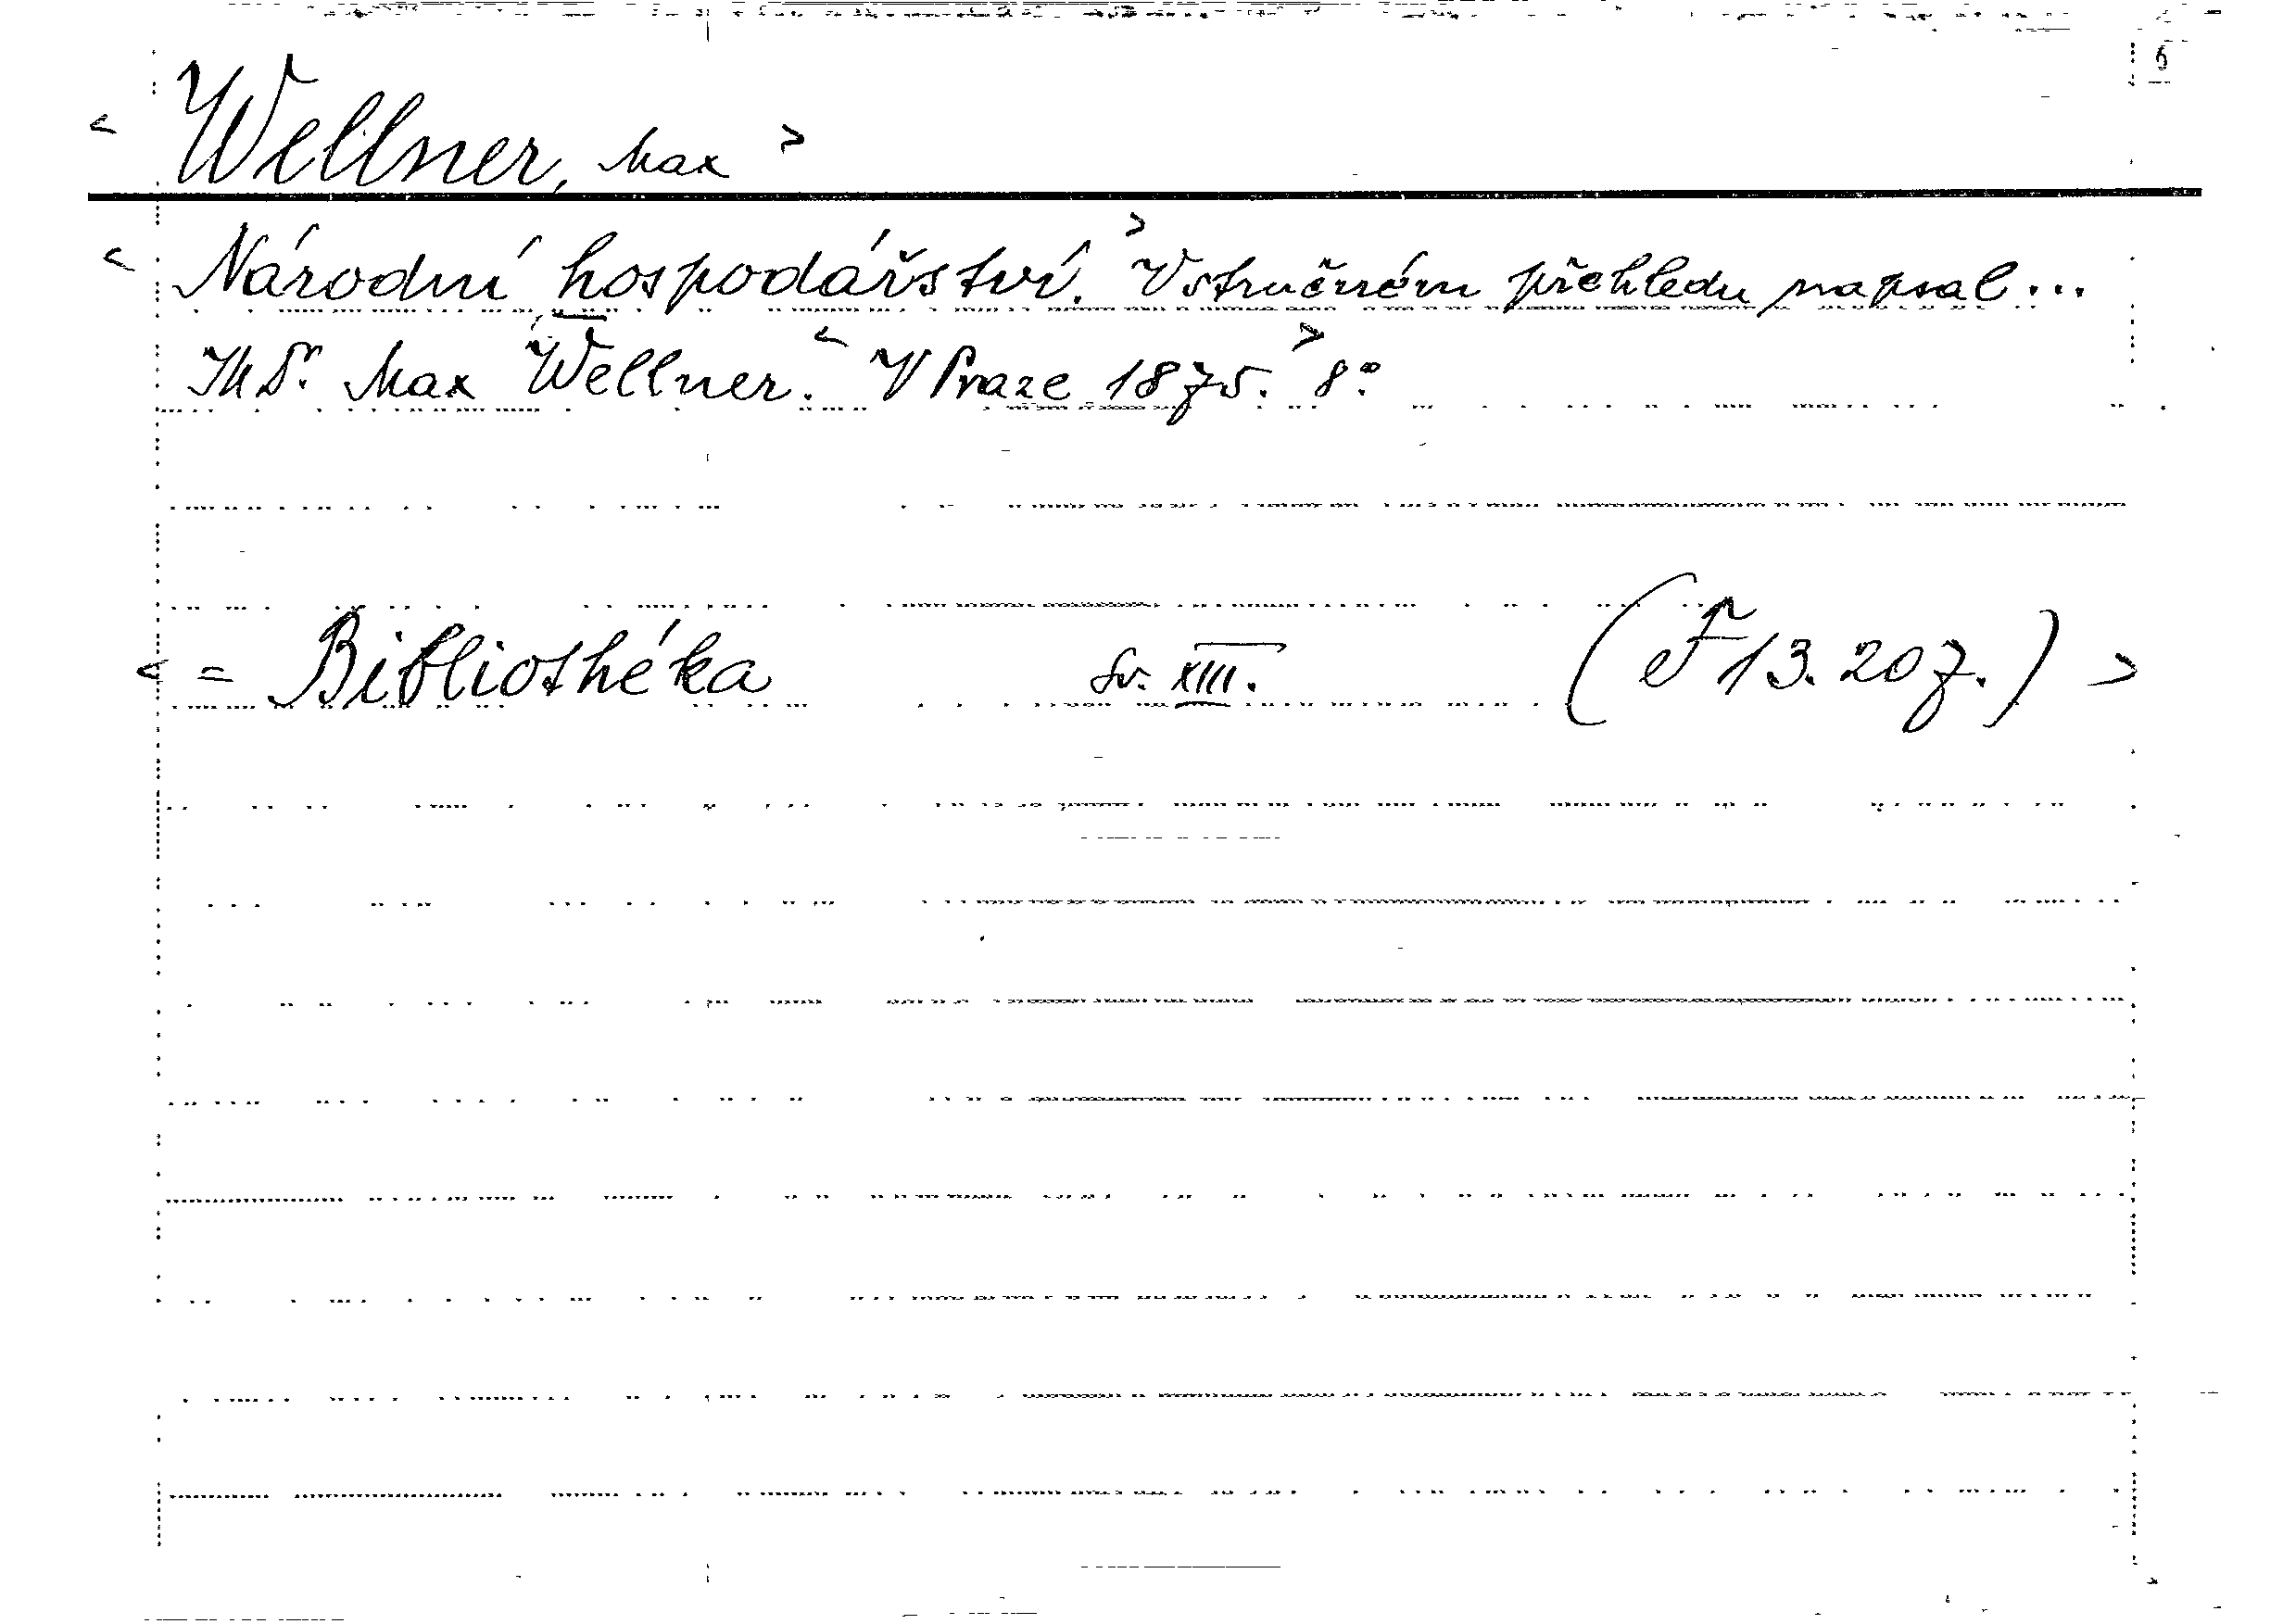 < Wellner, Max >
< Národní hospodářství. > V stručném přehledu napsal...
JUDr. Max Wellner. < V Praze 1875. > 8°.
< = Bibliothéka Sv. XIII. (F 13.207.) >